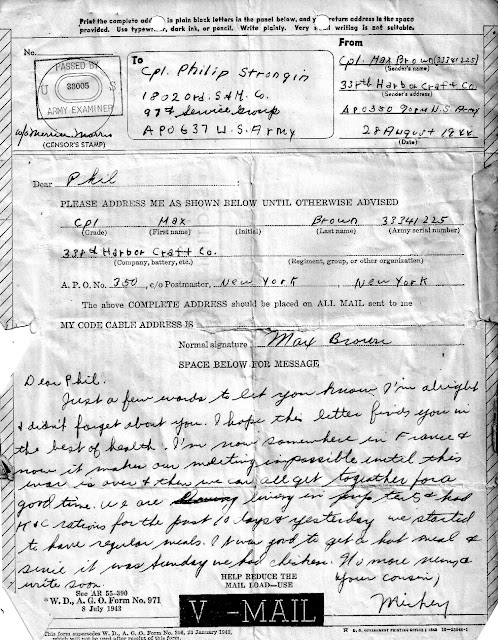 Print the complete address in plain block letters in the panel below, and your return address in the space
provided. Use typewriter, dark ink, or pencil. Write plainly. Very small writing is not suitable.
No.
PASSED BY
U 38005 S
ARMY EXAMINER
(CENSOR'S STAMP)
To
Cpl. Philip Strongin
1802 Ord. S&M. Co.
974 Service Group
APO 637 U.S. Army
From
Cpl. Max Brown (33341225)
(Sender's name)
338rd Harbor Craft Co.
(Sender's address)
APO 350 U.S. Army
28 August 1944
(Date)
Dear Phil
PLEASE ADDRESS ME AS SHOWN BELOW UNTIL OTHERWISE ADVISED
Cpl Max Brown 33341225
(Grade) (First name) (Initial) (Last name) (Army serial number)
338rd Harbor Craft Co.
(Company, battery, etc.) (Regiment, group, or other organization)
A. P. O. No. 350, c/o Postmaster, New York New York
The above COMPLETE ADDRESS should be placed on ALL MAIL sent to me
MY CODE CABLE ADDRESS IS
Normal signature Max Brown
SPACE BELOW FOR MESSAGE
Dear Phil.
Just a few words to let you know I'm alright
& didn't forget about you. I hope this letter finds you in
the best of health. I'm now somewhere in France &
now it makes our meeting impossible until this
war is over & then we can all get together for a
good time. We are living in pup tents & had
K & C rations for the past 10 days & yesterday we started
to have regular meals. It was good to get a hot meal &
since it was Sunday we had chicken. No more news &
write soon.
Your cousin,
Mickey
HELP REDUCE THE
MAIL LOAD—USE
V - MAIL
See AR 55-390
W. D., A. G. O. Form No. 971
8 July 1943
This form supersedes W. D., A. G. O. Form No. 206, 23 January 1943,
which will not be used after receipt of this form.
U. S. GOVERNMENT PRINTING OFFICE